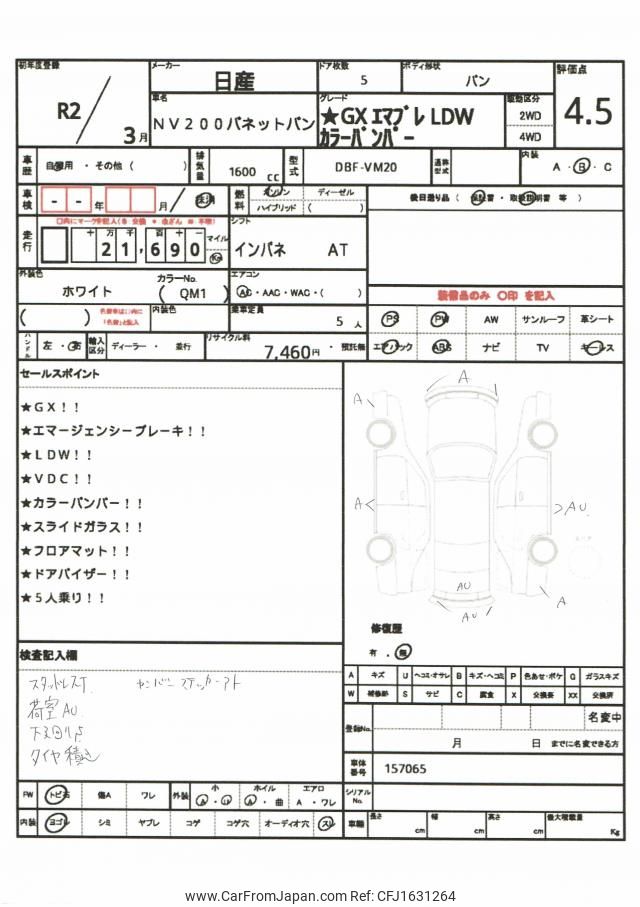 初年度登録 メーカー ドア枚数 ボディ形状 評価点
R2 / 3月 日産 5 バン 4.5
車名 グレード 駆動区分
NV200バネットバン ★GX エマブレ LDW 2WD
カラーバンパー 4WD
車歴 自家用 ・ その他 ( ) 排気量 1600 cc 型式 DBF-VM20 通称型式 内装 A ・ B ・ C
車検 - - 年 月 / 抹消 燃料 ガソリン ディーゼル ハイブリッド ( ) 後日送り品 ( 保証書 ・ 取扱説明書 等 )
走行 □内にマークを記入(余 交換 * 改ざん ※ 不明)
十 万 千 百 十 一 マイル
21,690 Km
シフト
インパネ AT
外装色 カラーNo. エアコン
ホワイト ( QM1 ) AC・AAC・WAC・( ) 装備品のみ 〇印 を記入
( ) 色替車は□内に「色替」と記入 内装色 乗車定員 5 人 PS PW AW サンルーフ 革シート
ハンドル 左 ・ 右 輸入区分 ディーラー ・ 並行 リサイクル料 7,460円 ・ 預託無 エアバック ABS ナビ TV キーレス
セールスポイント
★GX！！
★エマージェンシーブレーキ！！
★LDW！！
★VDC！！
★カラーバンパー！！
★スライドガラス！！
★フロアマット！！
★ドアバイザー！！
★5人乗り！！
A
A
A AU
AU
AU A
スペア
修復歴
有 ・ 無
検査記入欄
スタッドレスT ナンバー ステッカーアト
荷室AU
下廻りS
タイヤ積込
A キズ U ヘコミ・オサレ B キズ・ヘコミ P 色あせ・ボケ G ガラスキズ
W 補修跡 S サビ C 腐食 X 交換要 XX 交換済
登録No. 名変中
月 日 までに名変できる方
車体番号 157065
FW トビ石 傷A ワレ 外装 小 A ・ U ホイル A ・ 曲 エアロ A ・ ワレ シリアルNo.
内装 ヨゴレ シミ ヤブレ コゲ コゲ穴 オーディオ穴 スレ 車輛 長さ cm 幅 cm 高さ cm 最大積載量 Kg
www.CarFromJapan.com Ref: CFJ1631264